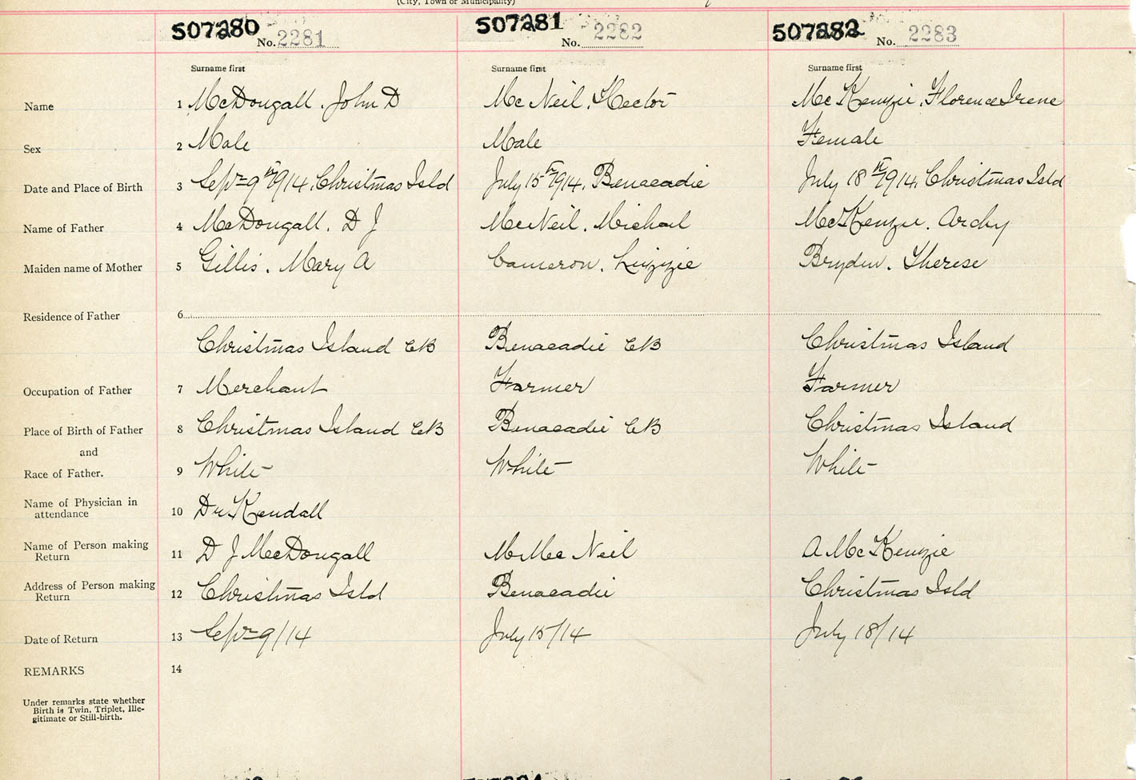 (City, Town or Municipality)
507280 No. 2281 507281 No. 2282 507282 No. 2283
Surname first Surname first Surname first
Name 1 McDougall, John D McNeil, Hector McKenzie, Florence Irene
Sex 2 Male Male Female
Date and Place of Birth 3 Sept 9th 1914, Christmas Isld July 15th 1914, Benacadie July 18th 1914, Christmas Isld
Name of Father 4 McDougall, D J McNeil, Michael McKenzie, Archy
Maiden name of Mother 5 Gillis, Mary A Cameron, Lizzie Bryden, Therese
Residence of Father 6
Christmas Island CB Benacadie CB Christmas Island
Occupation of Father 7 Merchant Farmer Farmer
Place of Birth of Father 8 Christmas Island CB Benacadie CB Christmas Island
and
Race of Father. 9 White White White
Name of Physician in
attendance 10 Dr Kendall
Name of Person making
Return 11 D J MacDougall M MacNeil A McKenzie
Address of Person making
Return 12 Christmas Isld Benacadie Christmas Isld
Date of Return 13 Sept 9/14 July 15/14 July 18/14
REMARKS 14
Under remarks state whether
Birth is Twin, Triplet, Ille-
gitimate or Still-birth.